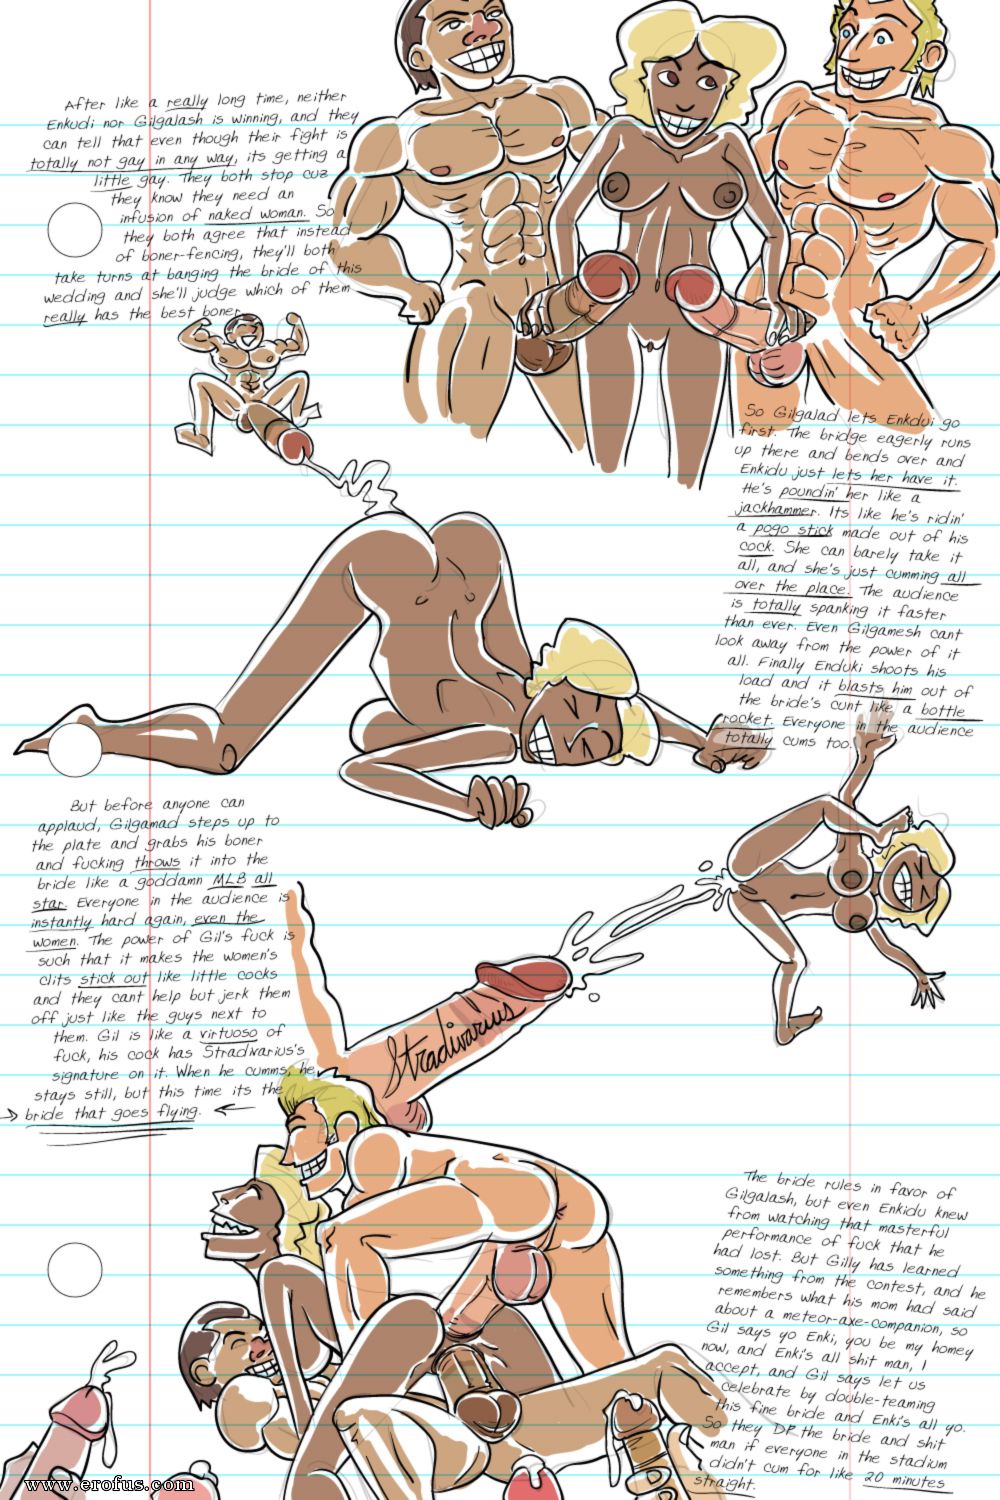 After like a really long time, neither
Enkudi nor Gilgalash is winning, and they
can tell that even though their fight is
totally not gay in any way, its getting a
little gay. They both stop cuz
they know they need an
infusion of naked woman. So
they both agree that instead
of boner-fencing, they'll both
take turns at banging the bride of this
wedding and she'll judge which of them
really has the best boner.
So Gilgalad lets Enkdui go
first. The bridge eagerly runs
up there and bends over and
Enkidu just lets her have it.
He's poundin' her like a
jackhammer. Its like he's ridin'
a pogo stick made out of his
cock. She can barely take it
all, and she's just cumming all
over the place. The audience
is totally spanking it faster
than ever. Even Gilgamesh cant
look away from the power of it
all. Finally Enduki shoots his
load and it blasts him out of
the bride's cunt like a bottle
rocket. Everyone in the audience
totally cums too.
But before anyone can
applaud, Gilgamad steps up to
the plate and grabs his boner
and fucking throws it into the
bride like a goddamn MLB all
star. Everyone in the audience is
instantly hard again, even the
women. The power of Gil's fuck is
such that it makes the women's
clits stick out like little cocks
and they cant help but jerk them
off just like the guys next to
them. Gil is like a virtuoso of
fuck, his cock has Stradivarius's
signature on it. When he cumms, he
stays still, but this time its the
bride that goes flying.
Stradivarius
The bride rules in favor of
Gilgalash, but even Enkidu knew
from watching that masterful
performance of fuck that he
had lost. But Gilly has learned
something from the contest, and he
remembers what his mom had said
about a meteor-axe-companion, so
Gil says yo Enki, you be my homey
now, and Enki's all shit man, I
accept, and Gil says let us
celebrate by double-teaming
this fine bride and Enki's all yo.
So they DP the bride and shit
man if everyone in the stadium
didn't cum for like 20 minutes
straight.
www.erofus.com